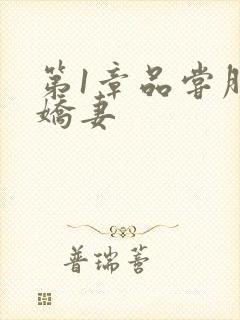 第1章品尝
娇妻
普瑞蒈